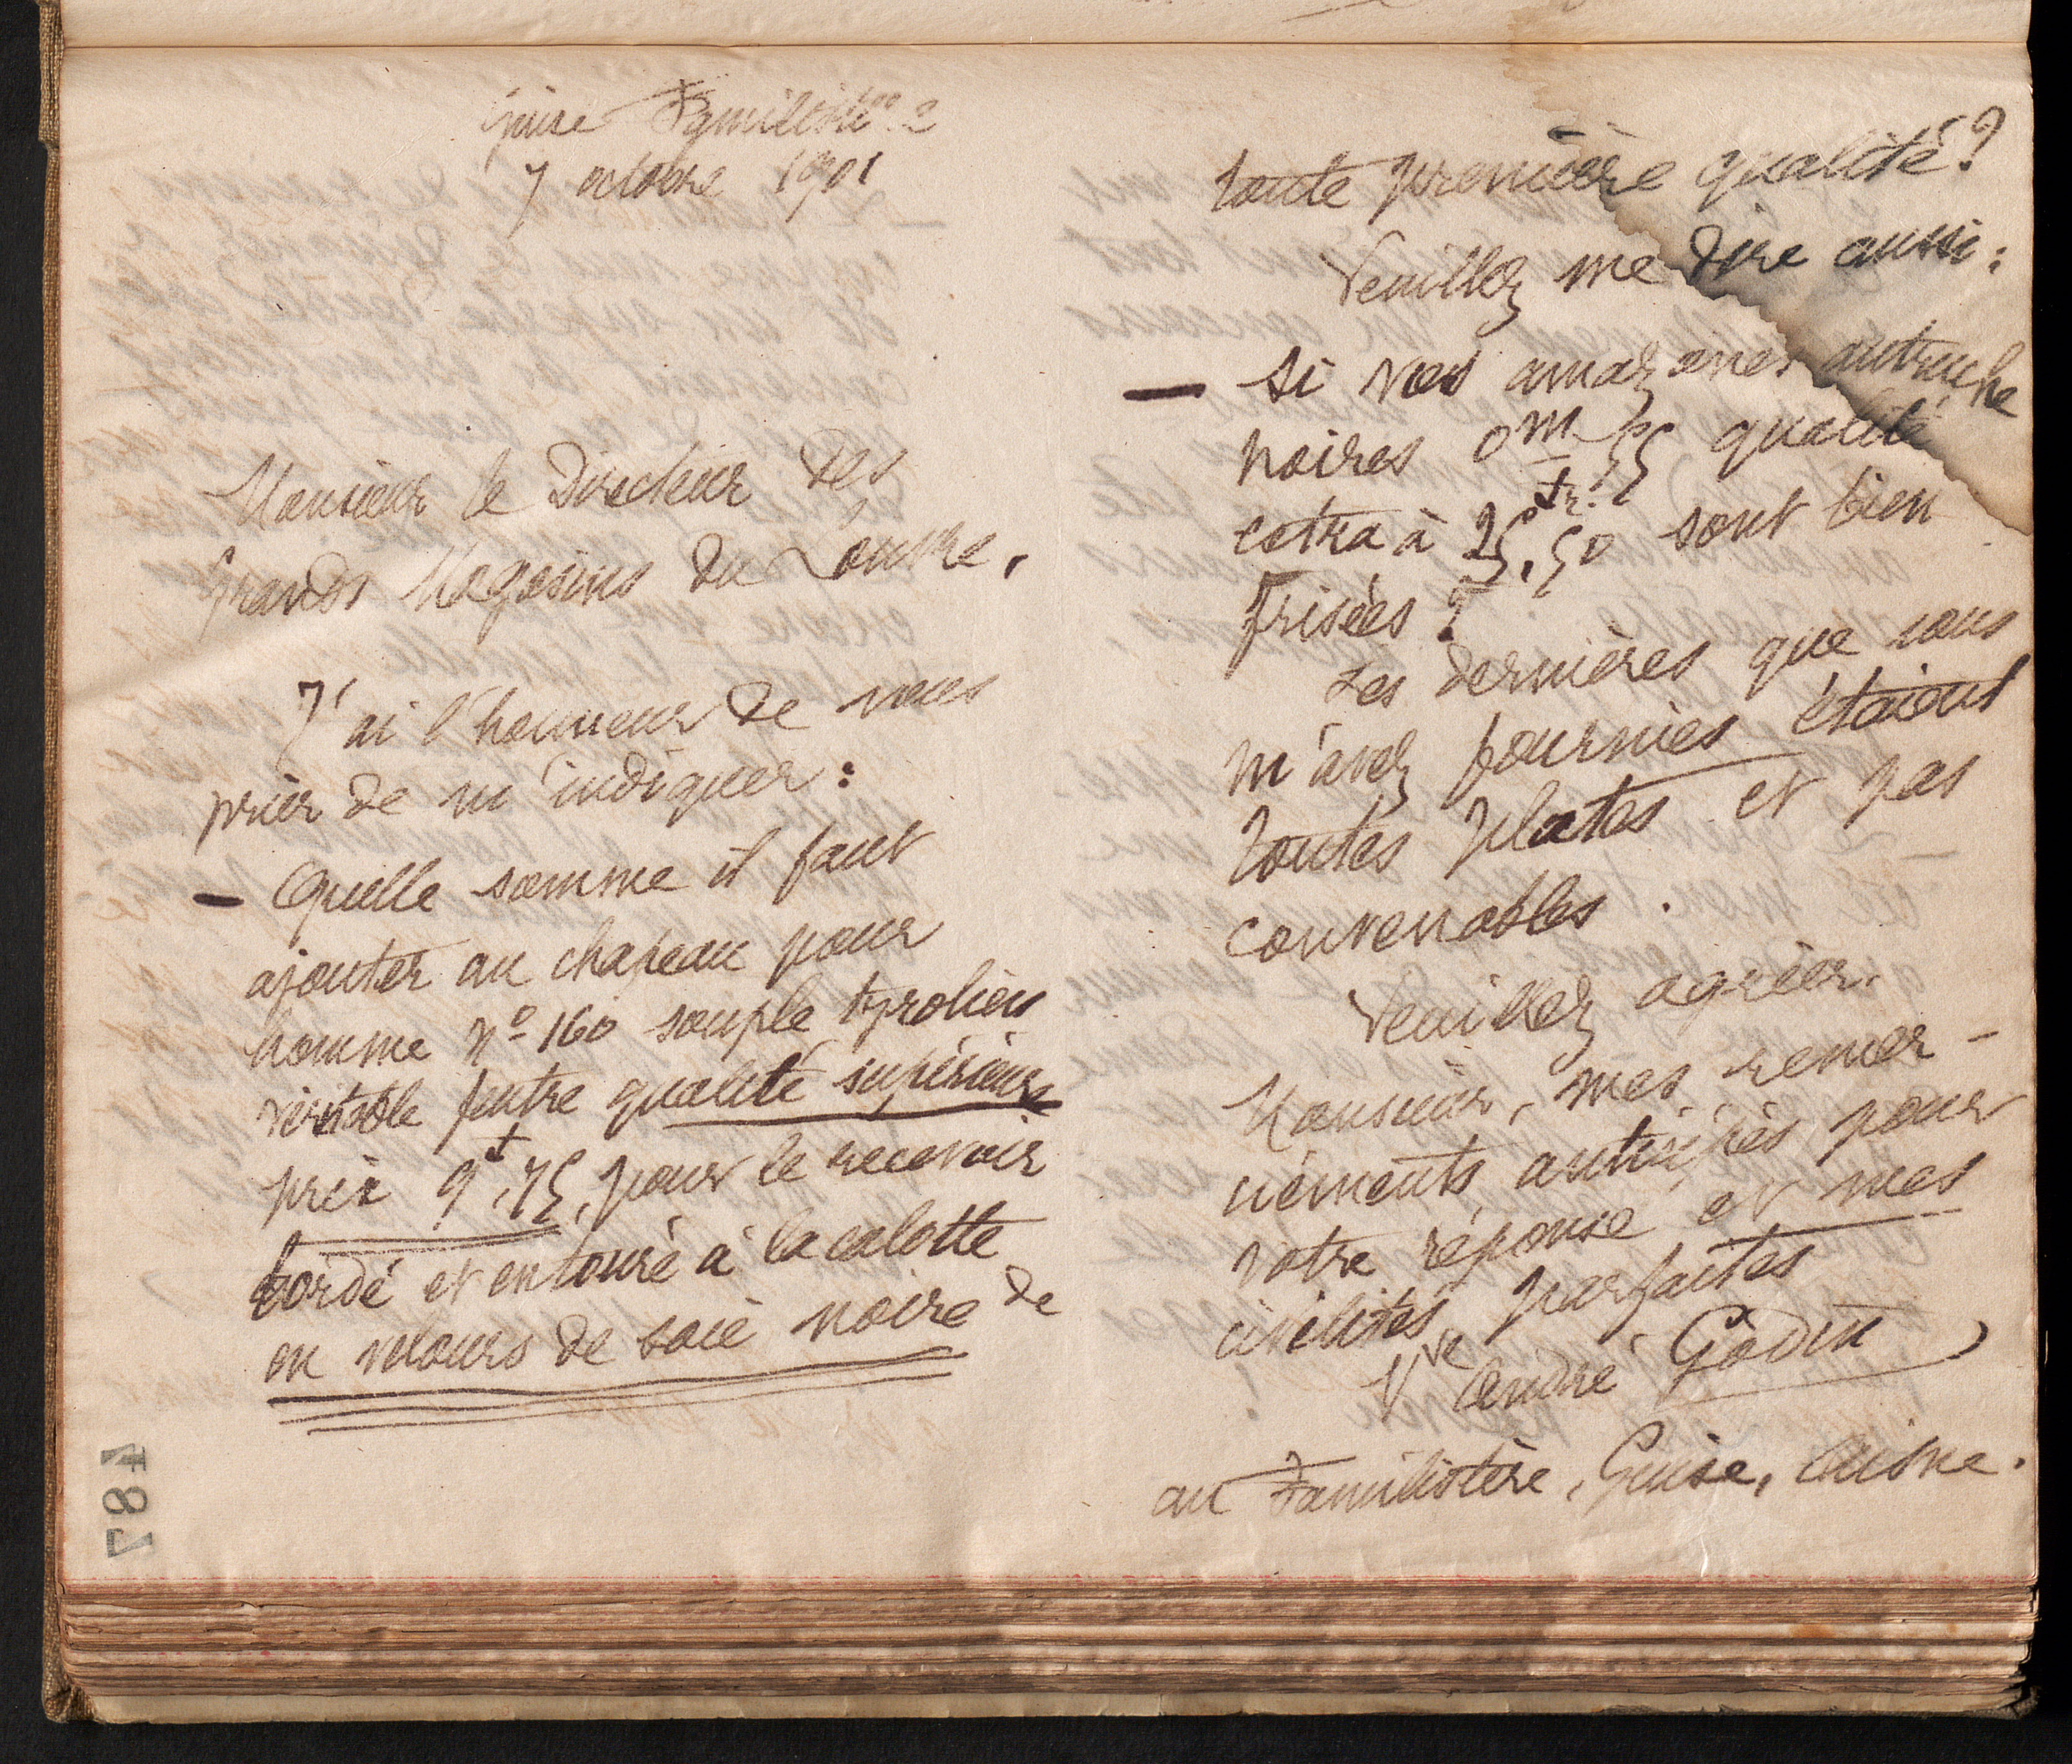 Guise Familistère
7 octobre 1901
Monsieur le Directeur des
Grands Magasins du Louvre,
J'ai l'honneur de vous
prier de m'indiquer :
— Quelle somme il faut
ajouter au chapeau pour
homme nº 160 souple tyrolien
véritable feutre qualité supérieure
prix 9f,75, pour le recevoir
bordé et entouré à la calotte
en velours de soie noire de
toute première qualité ?
Veuillez me dire aussi :
— si vos amazones autruche
noires 0m55 qualité
extra à 25fr.,50 sont bien
frisées ?
Les dernières que vous
m'avez fournies étaient
toutes plates et pas
convenables.
Veuillez agréer,
Monsieur, mes remer-
ciements anticipés pour
votre réponse et mes
civilités parfaites
Vve André Godin
au Familistère, Guise, Aisne.
487